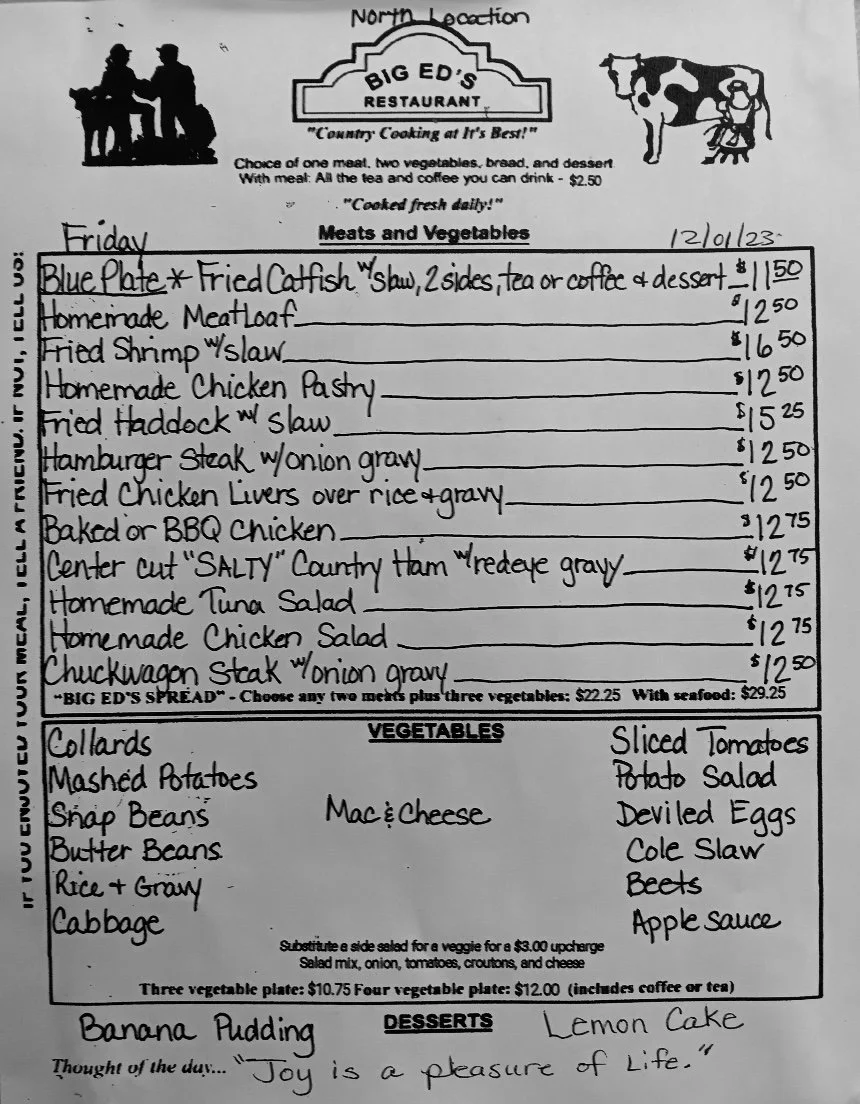 North Location
BIG ED'S
RESTAURANT
"Country Cooking at It's Best!"
Choice of one meat, two vegetables, bread, and dessert
With meal: All the tea and coffee you can drink - $2.50
"Cooked fresh daily!"
Friday Meats and Vegetables 12/01/23
Blue Plate * Fried Catfish w/slaw, 2 sides, tea or coffee & dessert $11 50
Homemade Meatloaf $12 50
Fried Shrimp w/slaw $16 50
Homemade Chicken Pastry $12 50
Fried Haddock w/ slaw $15 25
Hamburger Steak w/onion gravy $12 50
Fried Chicken Livers over rice & gravy $12 50
Baked or BBQ Chicken $12 75
Center cut "SALTY" Country Ham w/redeye gravy $12 75
Homemade Tuna Salad $12 75
Homemade Chicken Salad $12 75
Chuckwagon Steak w/onion gravy $12 50
"BIG ED'S SPREAD" - Choose any two meats plus three vegetables: $22.25 With seafood: $29.25
IF YOU ENJOYED YOUR MEAL, TELL A FRIEND. IF NOT, TELL US:
VEGETABLES
Collards
Mashed Potatoes
Snap Beans
Butter Beans
Rice + Gravy
Cabbage
Mac & Cheese
Sliced Tomatoes
Potato Salad
Deviled Eggs
Cole Slaw
Beets
Apple Sauce
Substitute a side salad for a veggie for a $3.00 upcharge
Salad mix, onion, tomatoes, croutons, and cheese
Three vegetable plate: $10.75 Four vegetable plate: $12.00 (includes coffee or tea)
Banana Pudding DESSERTS Lemon Cake
Thought of the day... "Joy is a pleasure of Life."